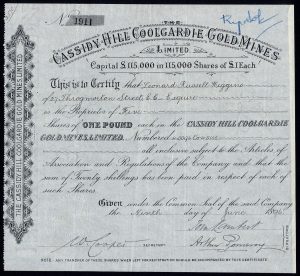 No. 1911
THE
CASSIDY HILL COOLGARDIE GOLD MINES
LIMITED.
Capital £115,000 in 115,000 Shares of £1 Each
This is to Certify that Leonard Russell Higgins
Throgmorton Street E.C. Esquire
is the Proprietor of Five
Shares of ONE POUND each in the CASSIDY HILL COOLGARDIE
GOLD MINES, LIMITED. Numbered
all inclusive subject to the Articles of
Association and Regulations of the Company and that the
sum of Twenty shillings has been paid in respect of each of
such Shares.
Given under the Common Seal of the said Company
the Ninth day of June
W Cooper SECRETARY.
DIRECTORS
NOTE. ANY TRANSFER OF THESE SHARES WHEN LEFT FOR REGISTRATION SHOULD BE ACCOMPANIED BY THIS CERTIFICATE
THE CASSIDY HILL COOLGARDIE GOLD MINES LIMITED